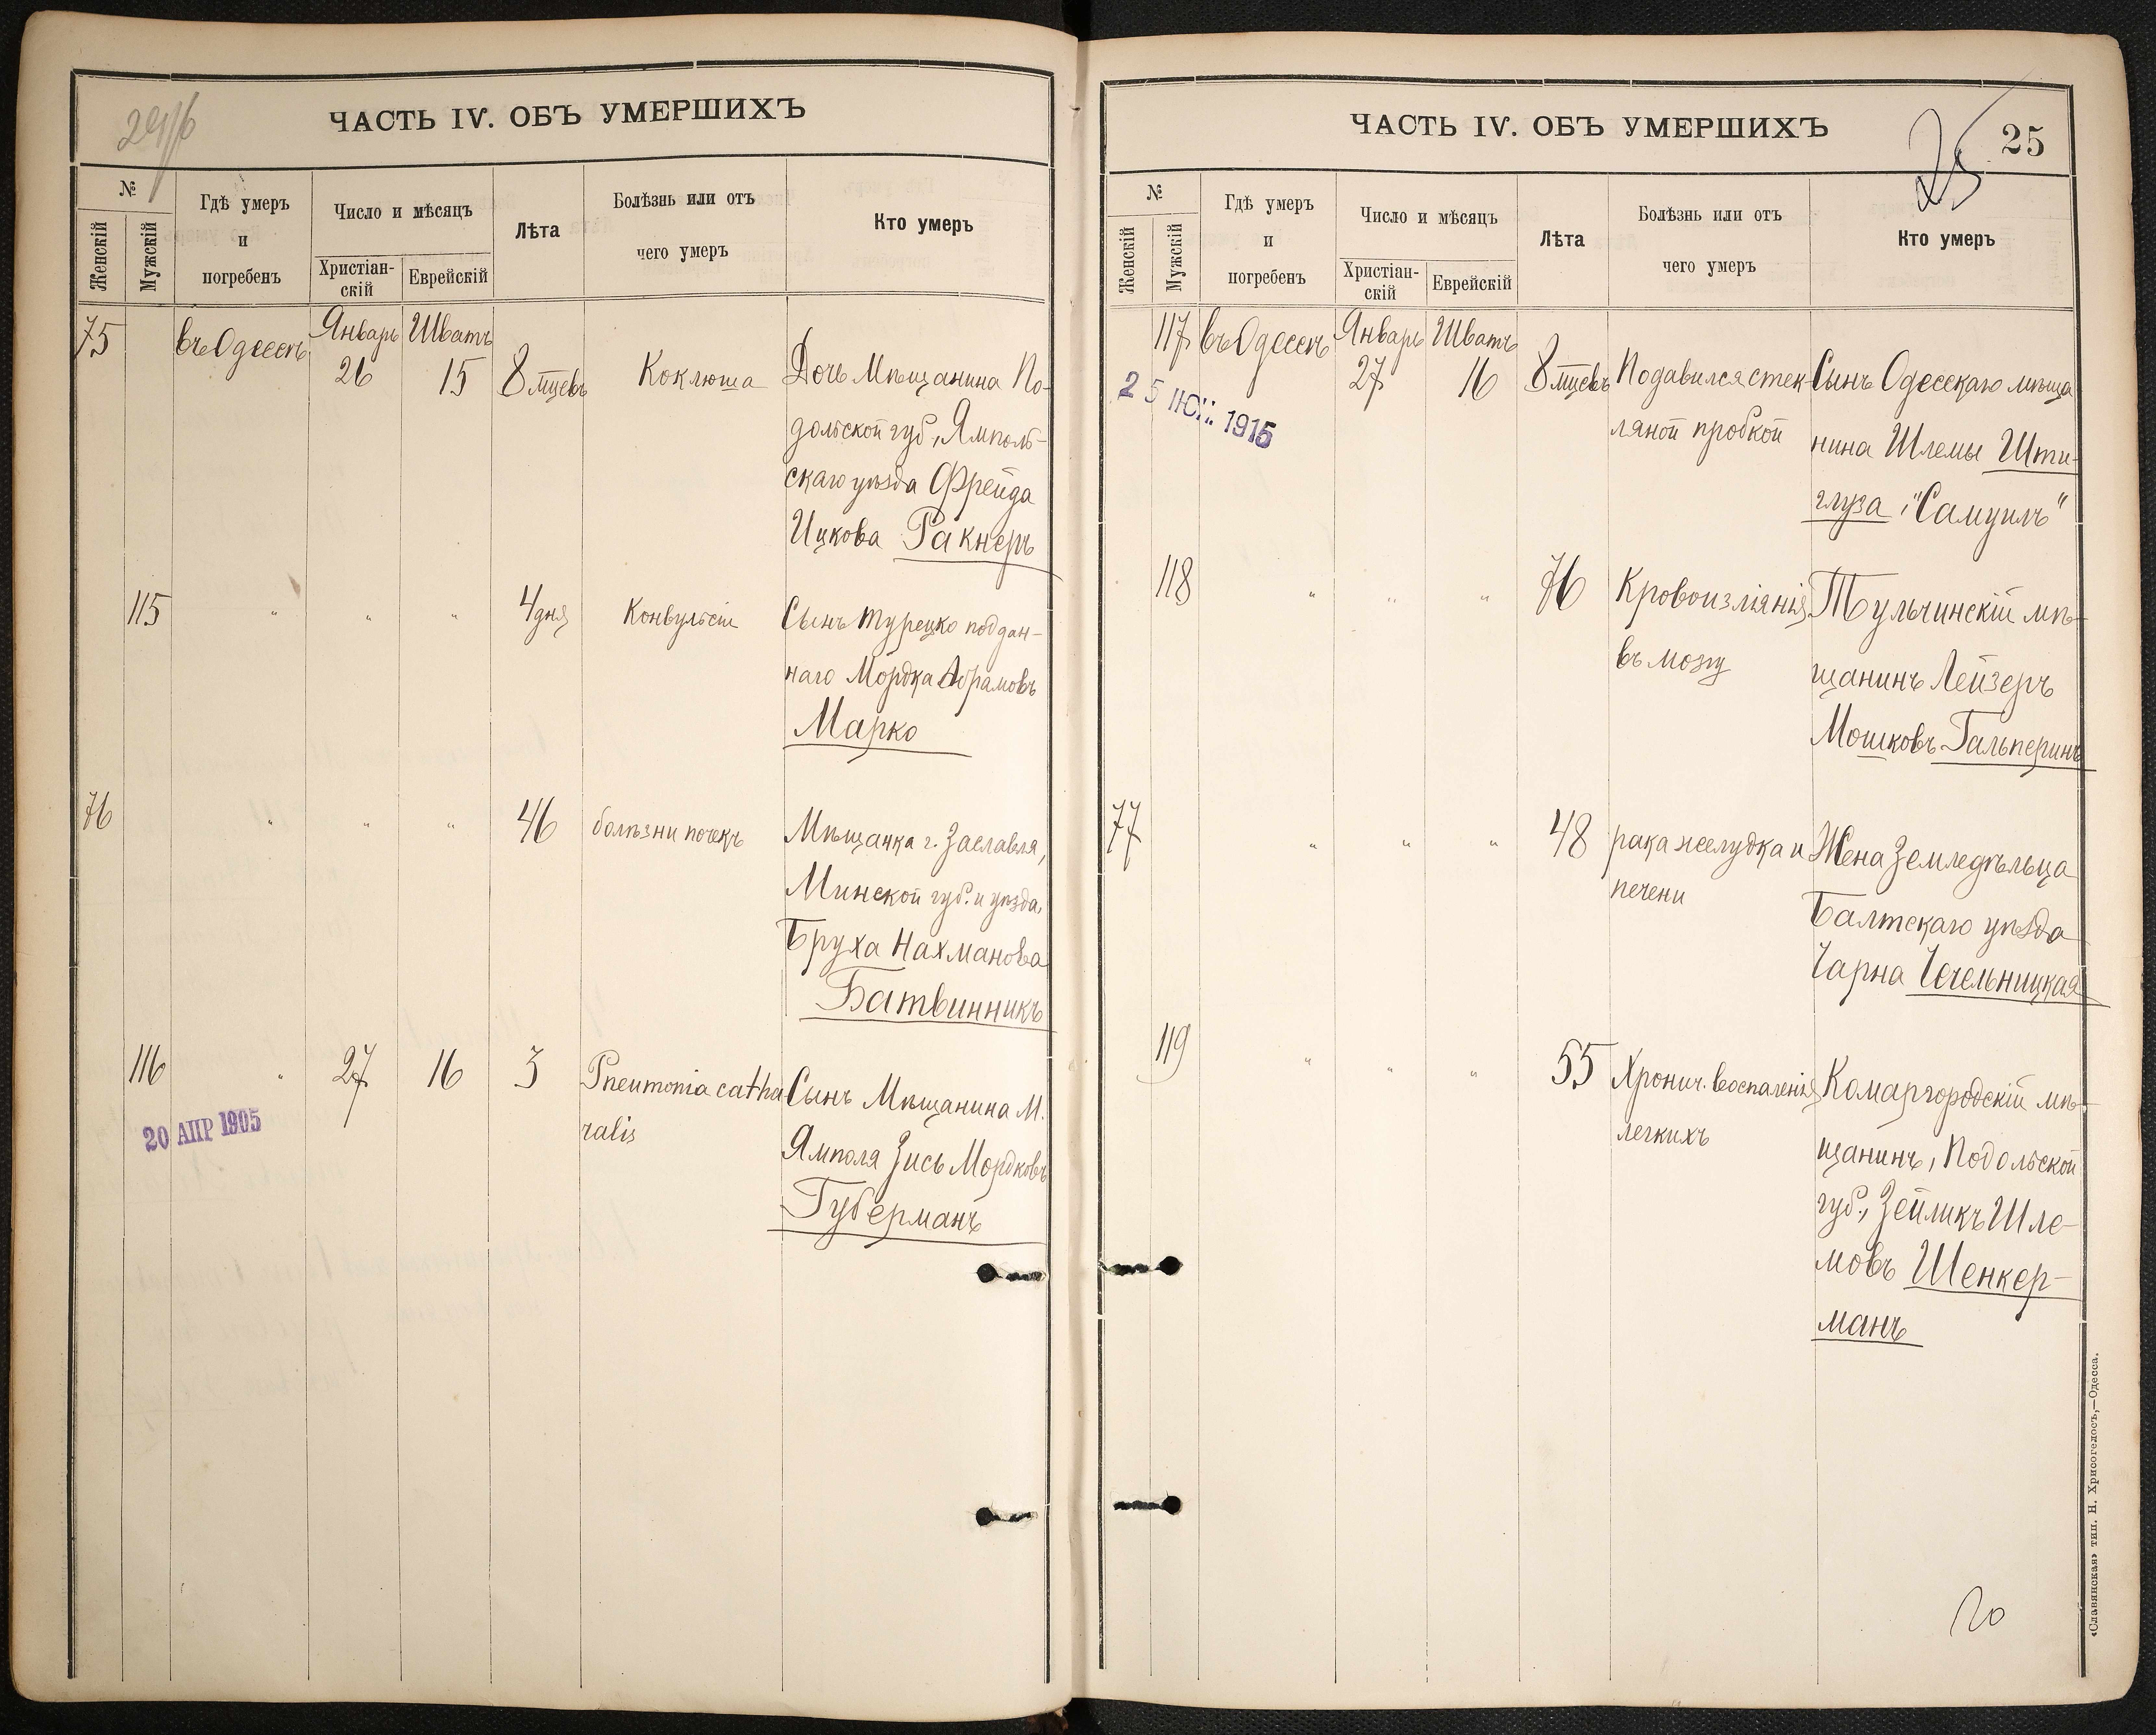 ЧАСТЬ IV. ОБЪ УМЕРШИХЪ
№
Женскій
Мужскій
Гдѣ умеръ
и
погребенъ
Число и мѣсяцъ
Христіан-
скій
Еврейскій
Лѣта
Болѣзнь или отъ
чего умеръ
Кто умеръ
75 въ Одессѣ Январь 26 Шватъ 15 8 мцевъ Коклюша Дочь Мѣщанина По-
дольской губ., Ямполь-
скаго уѣзда Фрейда
Ицкова Ракнеръ
115 " " " 4 дня Конвульсіи Сынъ турецко поддан-
наго Мордка Абрамовъ
Марко
76 " " " 46 болѣзни почекъ Мѣщанка г. Заславля,
Минской губ. и уѣзда,
Бруха Нахманова
Батвинникъ
116 " 27 16 3 Pneumonia catha Сынъ Мѣщанина м.
ralis
Ямполя Зись Мордковъ
Губерманъ
20 АПР 1905
ЧАСТЬ IV. ОБЪ УМЕРШИХЪ
25
25
№
Женскій
Мужскій
Гдѣ умеръ
и
погребенъ
Число и мѣсяцъ
Христіан-
скій
Еврейскій
Лѣта
Болѣзнь или отъ
чего умеръ
Кто умеръ
117 въ Одессѣ Январь 27 Шватъ 16 8 мцевъ Подавился стек- Сынъ Одесскаго мѣща
ляной пробкой нина Шлемы Шти-
глуза, "Самуилъ"
25 ІЮН. 1915
118 " " " 76 Кровоизліянія Тульчинскій мѣ-
въ мозгу щанинъ Лейзеръ
Мошковъ Гальперинъ
77 " " " 48 рака желудка и Жена Земледѣльца
печени Балтскаго уѣзда
Чарна Чечельницкая
119 " " " 55 Хронич. воспаленія Комаргородскій мѣ-
легкихъ щанинъ, Подольской
губ., Зейликъ Шле-
мовъ Шенкер-
манъ
«Славянская» тип. Н. Хрисогелосъ,—Одесса.